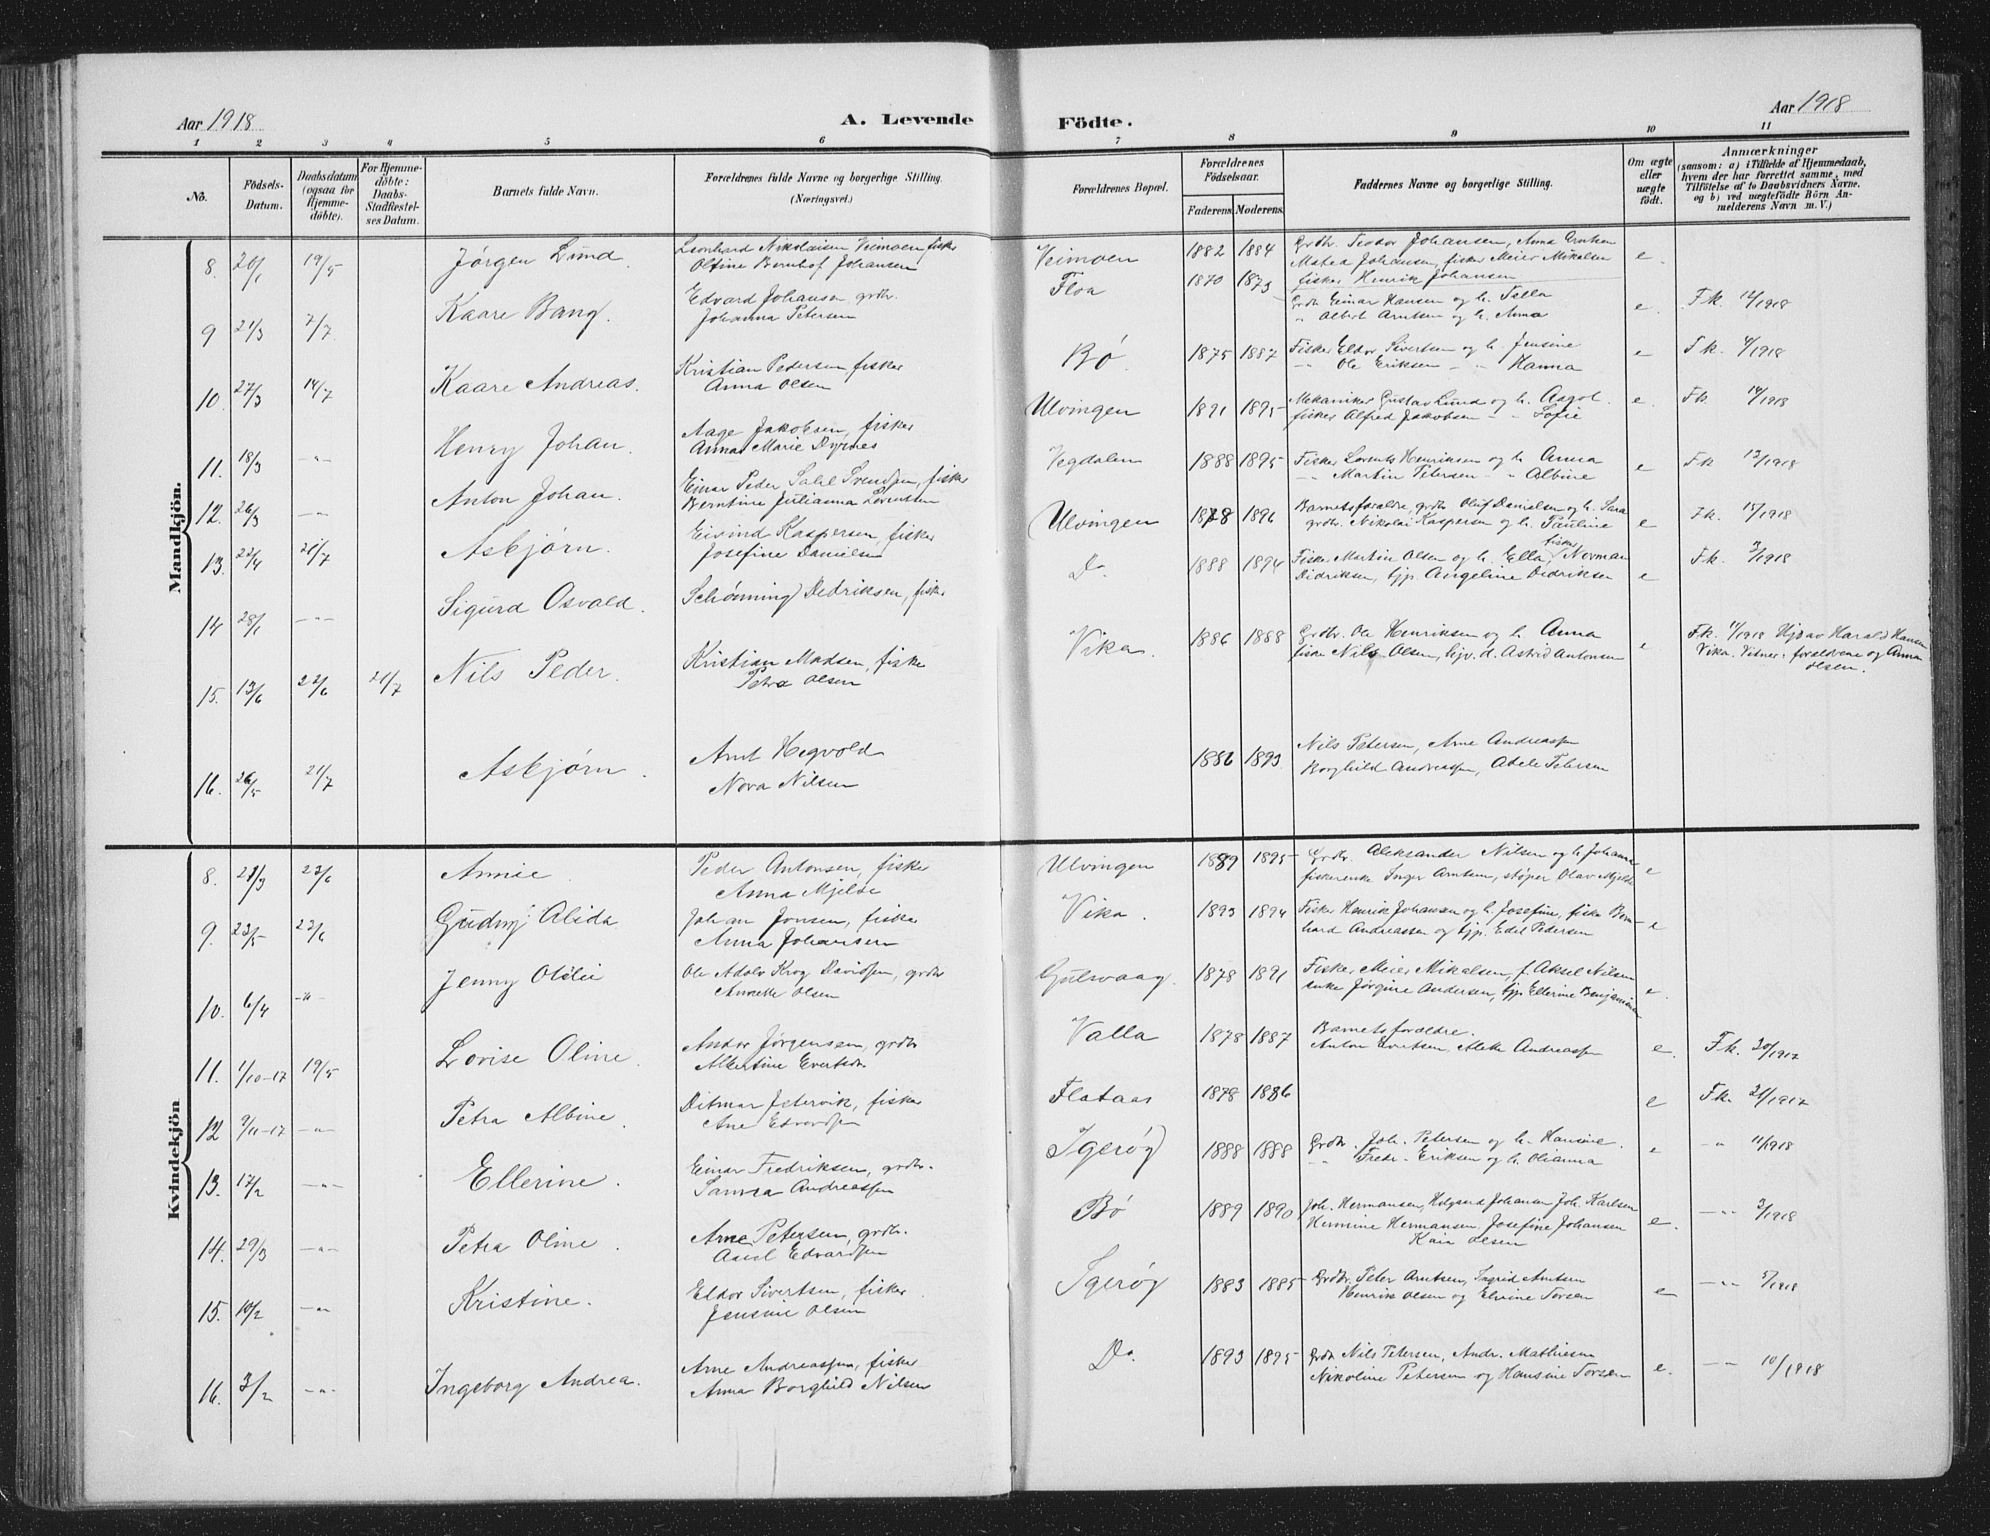 Aar 1918
A. Levende
Födte.
Aar 1918
1 2 3 4 5 6 7 8 9 10 11
No.
Födsels-Datum.
Daabsdatum (ogsaa for Hjemme-döbte).
For Hjemme-döbte: Daabs-Stadfæstel-ses Datum.
Barnets fulde Navn.
Forældrenes fulde Navne og borgerlige Stilling. (Næringsvei.)
Forældrenes Bopæl.
Forældrenes Födselsaar.
Faderens Moderens.
Faddernes Navne og borgerlige Stilling.
Om ægte eller uægte födt.
Anmærkninger
(saasom: a) i Tilfælde af Hjemmedaab, hvem der har forrettet samme, med Tilföielse af to Daabsvidners Navne, og b) ved uægtefödte Börn An-melderens Navn m. V.)
Mandkjön.
8. 20/1 19/5 Jørgen Lund. Leonhard Nikolaisen Veimoen fisker
Oline Bernhof Johansen
Veimoen 1882 1884 Grdbr. Teodor Johansen, Anna Arntsen
Johansen, fisker Meier Mikalsen e.
fisker Henrik Johansen
9 21/3 7/7 Kaare Bang. Edvard Johansen grdbr.
Johanna Petersen
Floa 1870 1873 Grdb Einar Hansen og h. Tella
" Albert Arntsen og h. Anna e. F.k. 12/1918
10. 27/3 14/7 Kaare Andreas. Kristian Pedersen fisker
Anna Olsen
Bø. 1875 1887 Fisker Eldor Sivertsen og h. Jensine
-"- Ole Eriksen - " - Hanna e F.k. 4/1918
11. 18/3 -"- Henry Johan. Aage Jakobsen, fisker
Anna Marie Dyrnes
Ulvingen 1891 1895 Mekaniker Gustav Lund og h. Aagot.
fisker Alfred Jakobsen - " - Sofie e. F.k. 14/1918
12. 26/3 -"- Anton Johan. Einar Peder Salil Svendsen, fisker
Berntine Julianna Lorentsen
Vegdalen 1888 1895 Fisker Lorents Henriksen og h. Anna
-"- Martin Petersen - " - Albine e F.k. 13/1918
13. 22/4 21/7 Asbjørn. Eivind Kaspersen, fisker
Josefine Danielsen
Ulvingen 1878 1896 Barnetsforældre, grdbr Oluf Danielsen og h. Sara
grdbr. Nikolai Kaspersen og h. Pauline e F.k. 15/1918
14 28/1 -"- Sigurd Osvald. Schønning Dedriksen, fisker
Do. 1888 1894 Fisker Martin Olsen og h. Ella, fisker Norman
Didriksen, tjp. Angeline Didriksen e F.k. 3/1918
15. 13/6 22/6 21/7 Nils Peder. Kristian Madsen, fisker
Petra Olsen
Vika. 1886 1888 Grdbr. Ole Henriksen og h. Anna
fisker Nils Olsen, Astrid Antonsen e F.k. 11/1918 Hjd av Harald Hansen
Vika. Vitner: forældrene og Anna
Olsen.
16. 26/5 21/7 Asbjørn. Arnt Hegvold
Nova Nilsen
1886 1893 Nils Petersen, Arne Andreassen
Borghild Andreassen, Adele Petersen
Kvindekjön
8. 28/3 23/6 Annie. Peder Antonsen, fisker
Anna Mjelde
Ulvingen 1889 1895 Grdbr. Aleksander Nilsen og h. Johanna
fiskerenke Inger Arntsen, støper Olav Mjelde e
9. 23/5 23/6 Gudny Alida Johan Jonsen, fisker
Anna Johansen
Vika. 1893 1894 Fisker Henrik Johansen og h. Josefine, fisker Bern-
hard Andreassen og tjp. Edel Pedersen e
10. 6/4 -"- Jenny Otilie Ole Adolv Krog Davidsen, grdbr
Annette Olsen
Gulsvaag. 1878 1891 Fisker Meier Mikalsen, f. Aksel Nilsen
enke Jørgine Andersen, tjp. Ellerine Benjaminsen e.
11. 1/10-17 19/5 Lovise Oline. Andor Jørgensen, grdbr
Albertine Evertsdr.
Valla 1878 1887 Barnetsforældre.
Anton Evertsen, Andreassen e. F.k. 20/1917
12 9/11-17 -"- Petra Albine. Ditmar Jstervik, fisker
Ane Edvardsen
Flataas 1878 1886 e F.k. 21/1917
13. 17/2 -"- Ellerine. Einar Fredriksen, grdbr.
Sanna Andreassen
Igerøy 1888 1888 Grdbr. Joh. Petersen og h. Hansine.
" Fredr. Eriksen og h. Olianna e -"- 11/1918
14. 29/3 -"- Petra Oline. Arne Petersen, grdbr.
Edvardsen
Bø 1889 1890 Joh. Hermansen, Helgand Johansen Joh. Karlsen
Hermine Hermansen, Josefine Johansen e. -"- 2/1918
Kaia Olsen
15. 10/2 -"- Kristine. Eldor Sivertsen, fisker
Jensine Olsen
Igerøy 1883 1885 Grdbr. Peter Arntsen, Ingrid Arntsen
Henrik Olsen og Elvine Torsen e -"- 5/1918
16. 3/2 -"- Ingeborg Andrea. Arne Andreassen, fisker
Anna Borghild Nilsen
Do. 1893 1895 Grdbr Nils Petersen, Andr. Mathiesen
Nikoline Petersen og Hansine Torsen e. -"- 10/1918